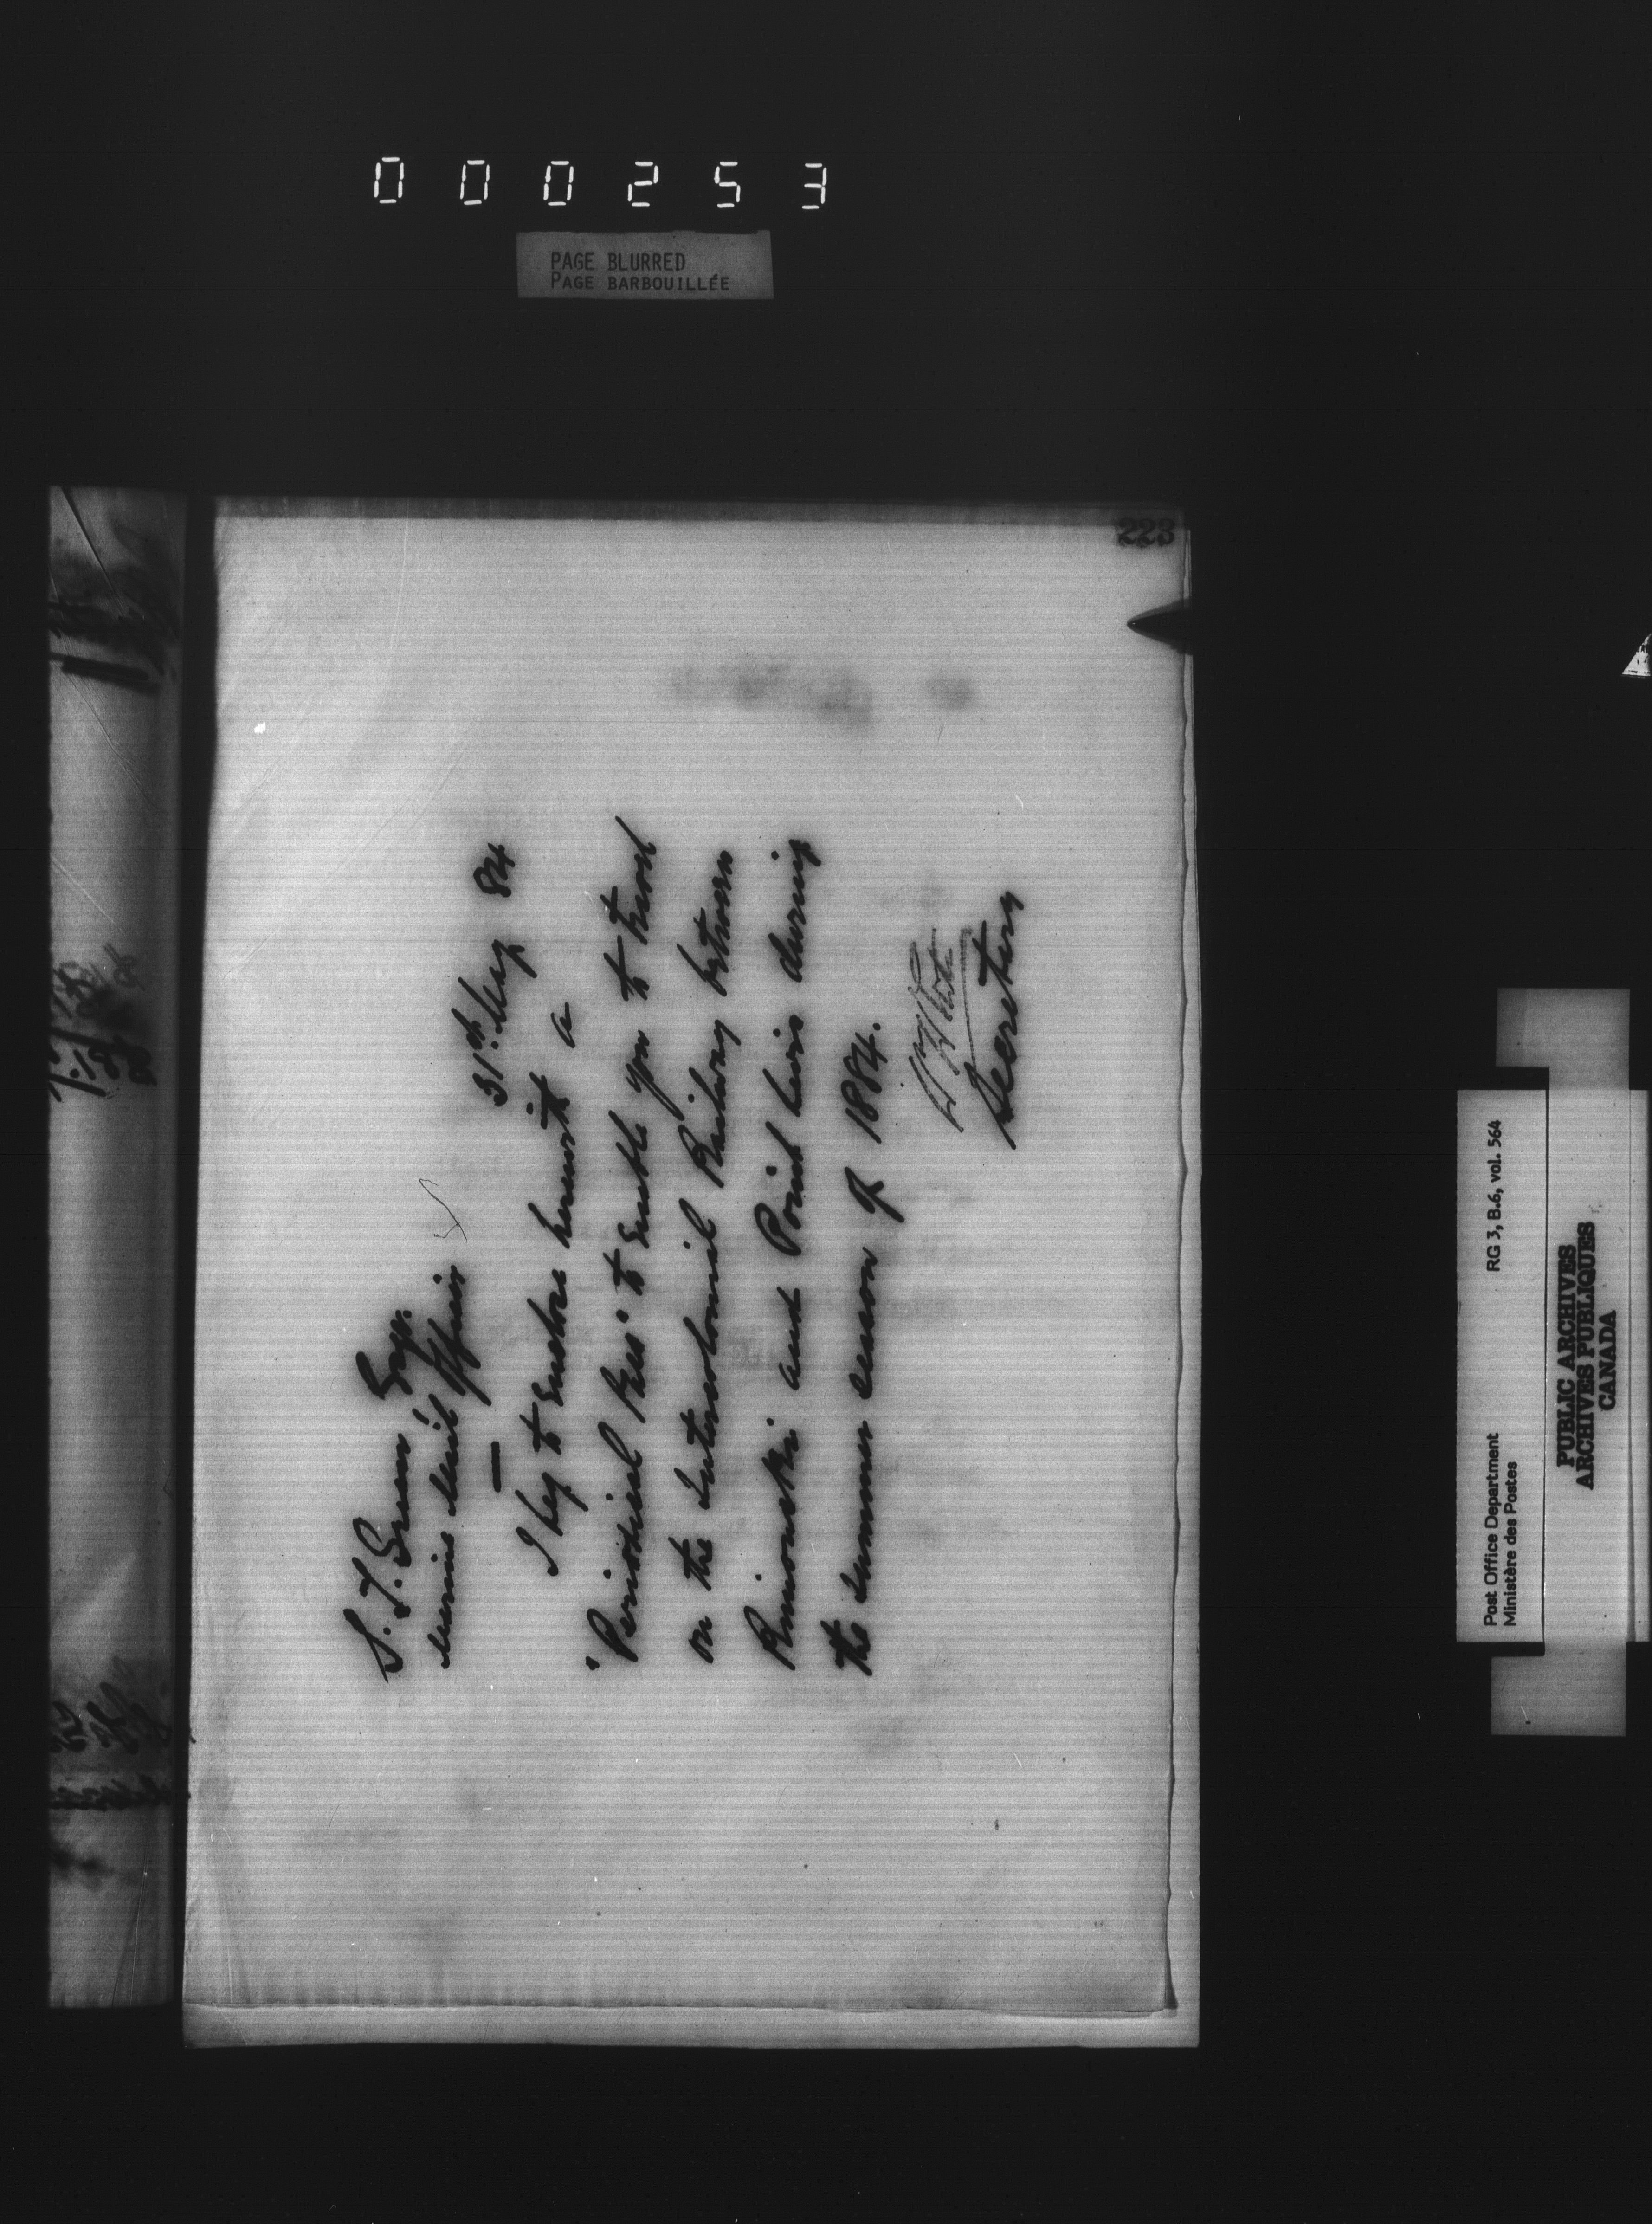 000253
PAGE BLURRED
PAGE BARBOUILLÉE
223
S. T. Green Esq.
Marine Mail Officer
31st May 84
I beg to enclose herewith a
"Periodical Pass" to enable you to travel
on the Intercolonial Railway between
Rimouski and Point Levis during
the summer season of 1884.
Secretary
Post Office Department
Ministère des Postes
RG 3, B.6, vol. 564
PUBLIC ARCHIVES
ARCHIVES PUBLIQUES
CANADA